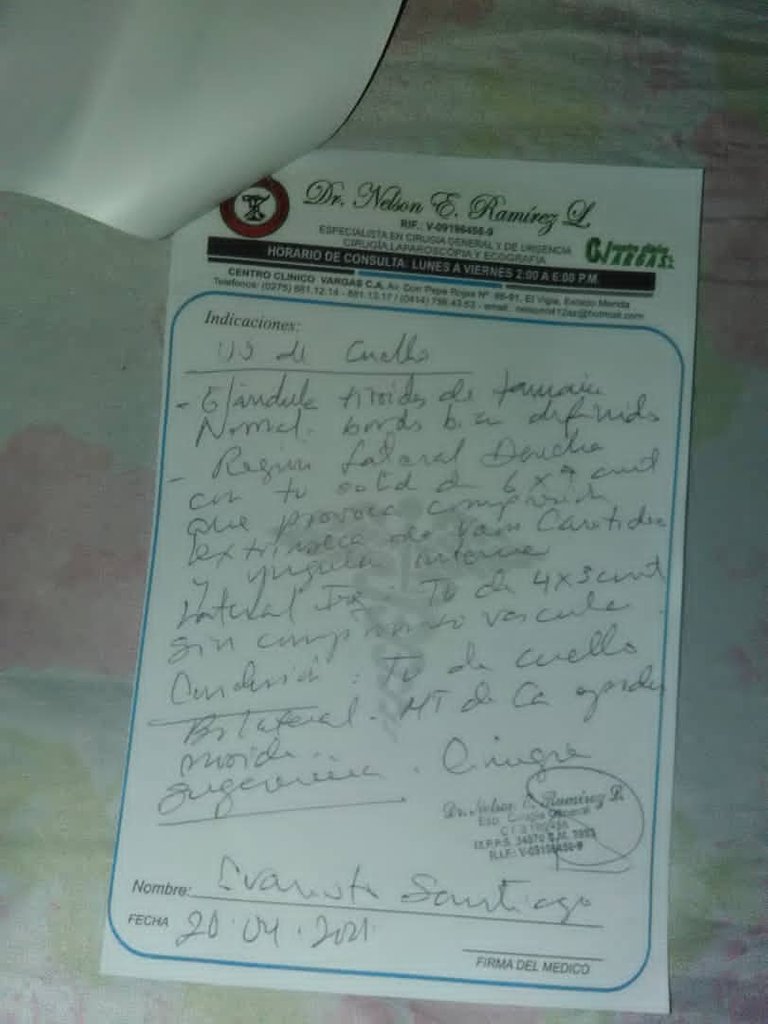 Dr. Nelson E. Ramírez L
RIF.: V-09196456-9
ESPECIALISTA EN CIRUGIA GENERAL Y DE URGENCIA
CIRUGÍA LAPAROSCOPIA Y ECOGRAFIA
HORARIO DE CONSULTA: LUNES A VIERNES 2:00 A 6:00 P.M.
CENTRO CLINICO VARGAS C.A. Av. Don Pepe Rojas Nº El Vigía, Estado Mérida
Teléfonos: (0275) 881.12.14 - 881.13.17 / (0414) email.
Indicaciones:
US de Cuello
- Glándula tiroides de tamaño
Normal. bordes bien definidos
- Region Lateral Derecha
con tu solid de 6 x cmt
que provoca compresión
extrinseca de vaso Carotideo
y yugular interna
Lateral Izq. Tu de 4x3 cmt
sin compromiso vascular
Conclusión: Tu de cuello
Bilateral. MT de Ca
Sugerencia. Cirugía
Dr. Nelson E. Ramírez L.
Esp. Cirugía General
Nombre: Evaristo Santiago
FECHA 20.04.2021
FIRMA DEL MEDICO